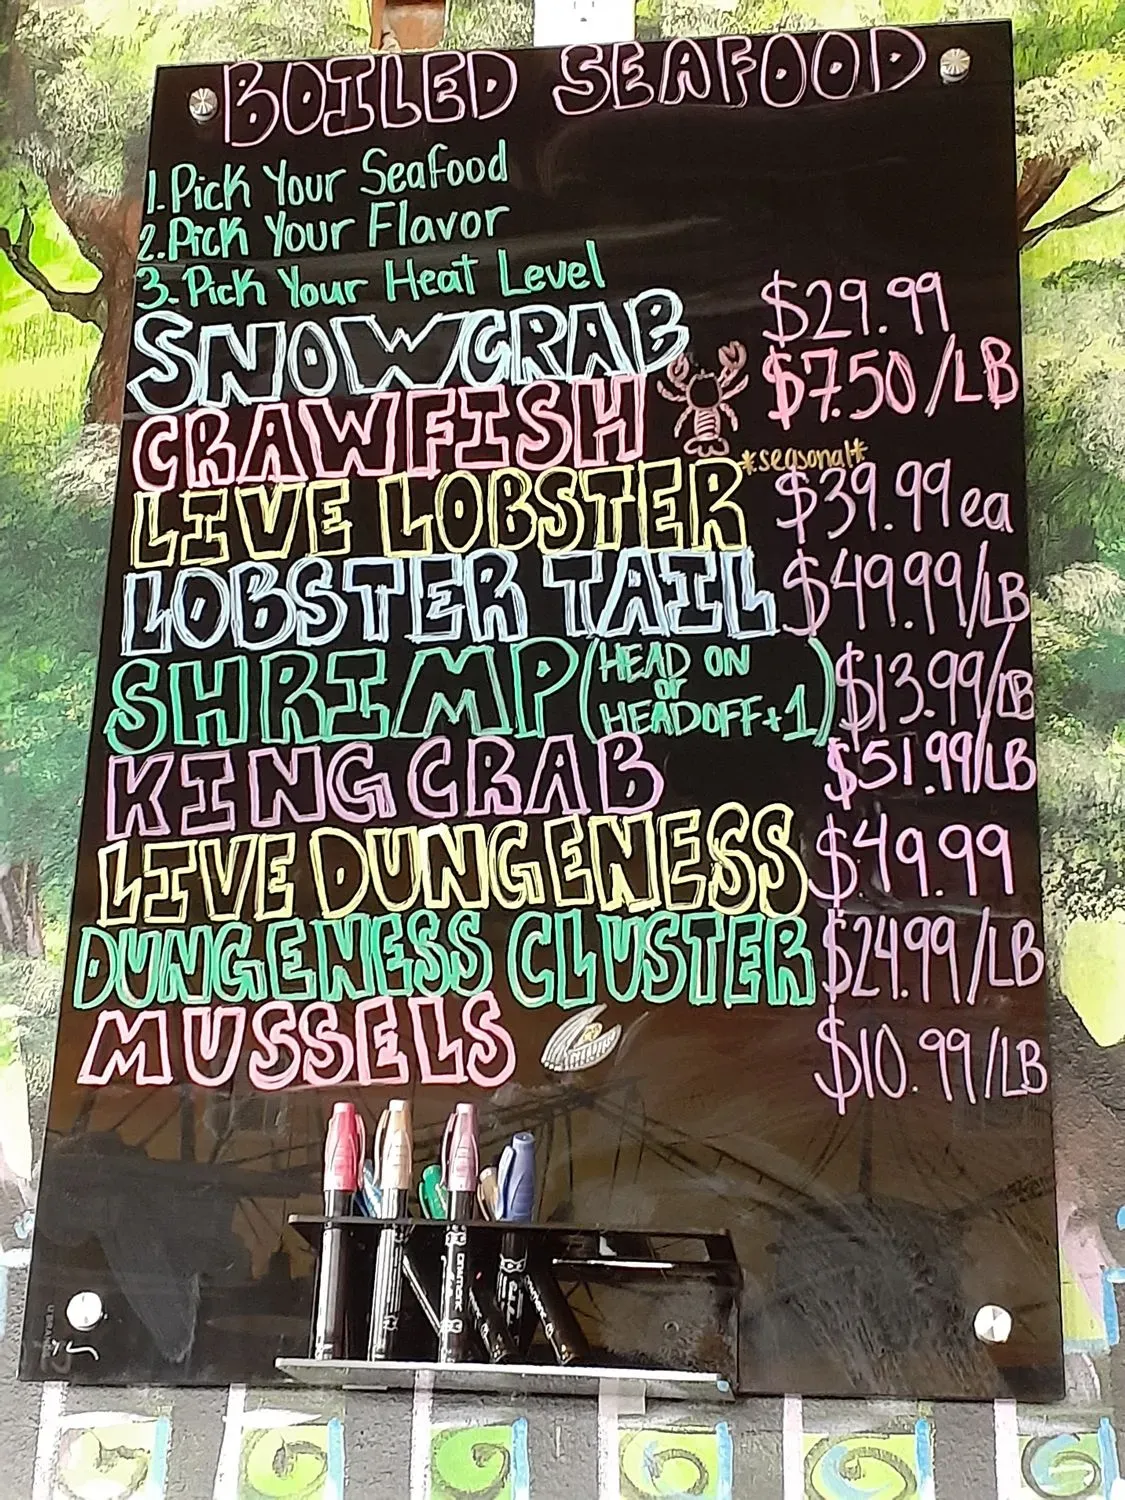 BOILED SEAFOOD
1. Pick Your Seafood
2. Pick Your Flavor
3. Pick Your Heat Level
SNOWCRAB $29.99
CRAWFISH $7.50/LB
*seasonal*
LIVE LOBSTER $39.99 ea
LOBSTER TAIL $49.99/LB
SHRIMP (HEAD ON or HEADOFF+1) $13.99/LB
KING CRAB $51.99/LB
LIVE DUNGENESS $49.99
DUNGENESS CLUSTER $24.99/LB
MUSSELS $10.99/LB